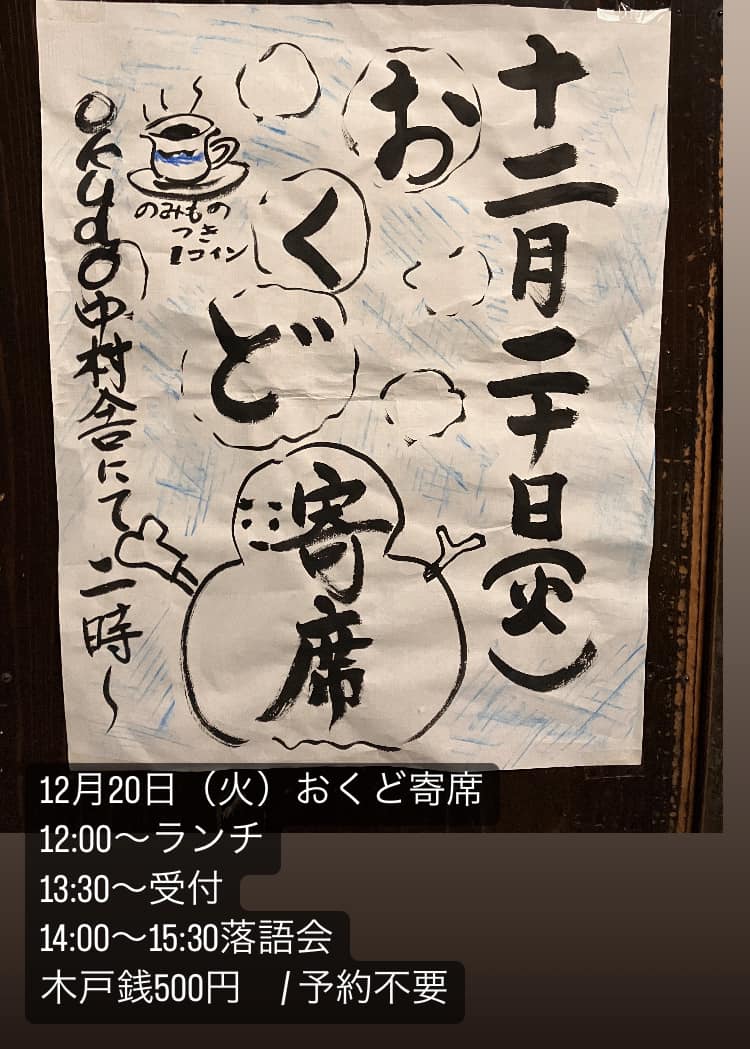 十二月二十日(火)
おくど
寄席
のみもの
つき
1コイン
okudo中村舎にて 二時〜
12月20日（火）おくど寄席
12:00〜ランチ
13:30〜受付
14:00〜15:30落語会
木戸銭500円　/ 予約不要